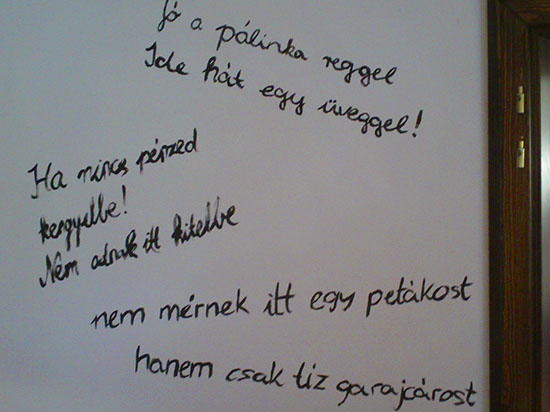 Jó a pálinka reggel
Ide hát egy üveggel!
Ha nincs pénzed
kergyelbe!
Nem adnak itt hitelbe
nem mérnek itt egy petákost
hanem csak tiz garajcárost